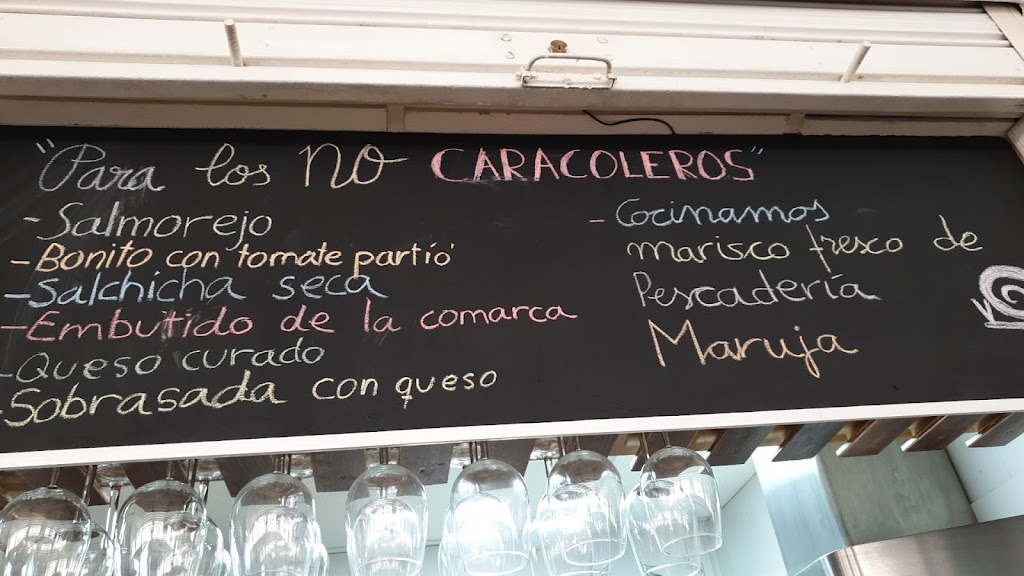 "Para los NO CARACOLEROS"
- Salmorejo
- Bonito con tomate partió'
- Salchicha seca
- Embutido de la comarca
- Queso curado
- Sobrasada con queso
- Cocinamos
marisco fresco de
Pescadería
Maruja